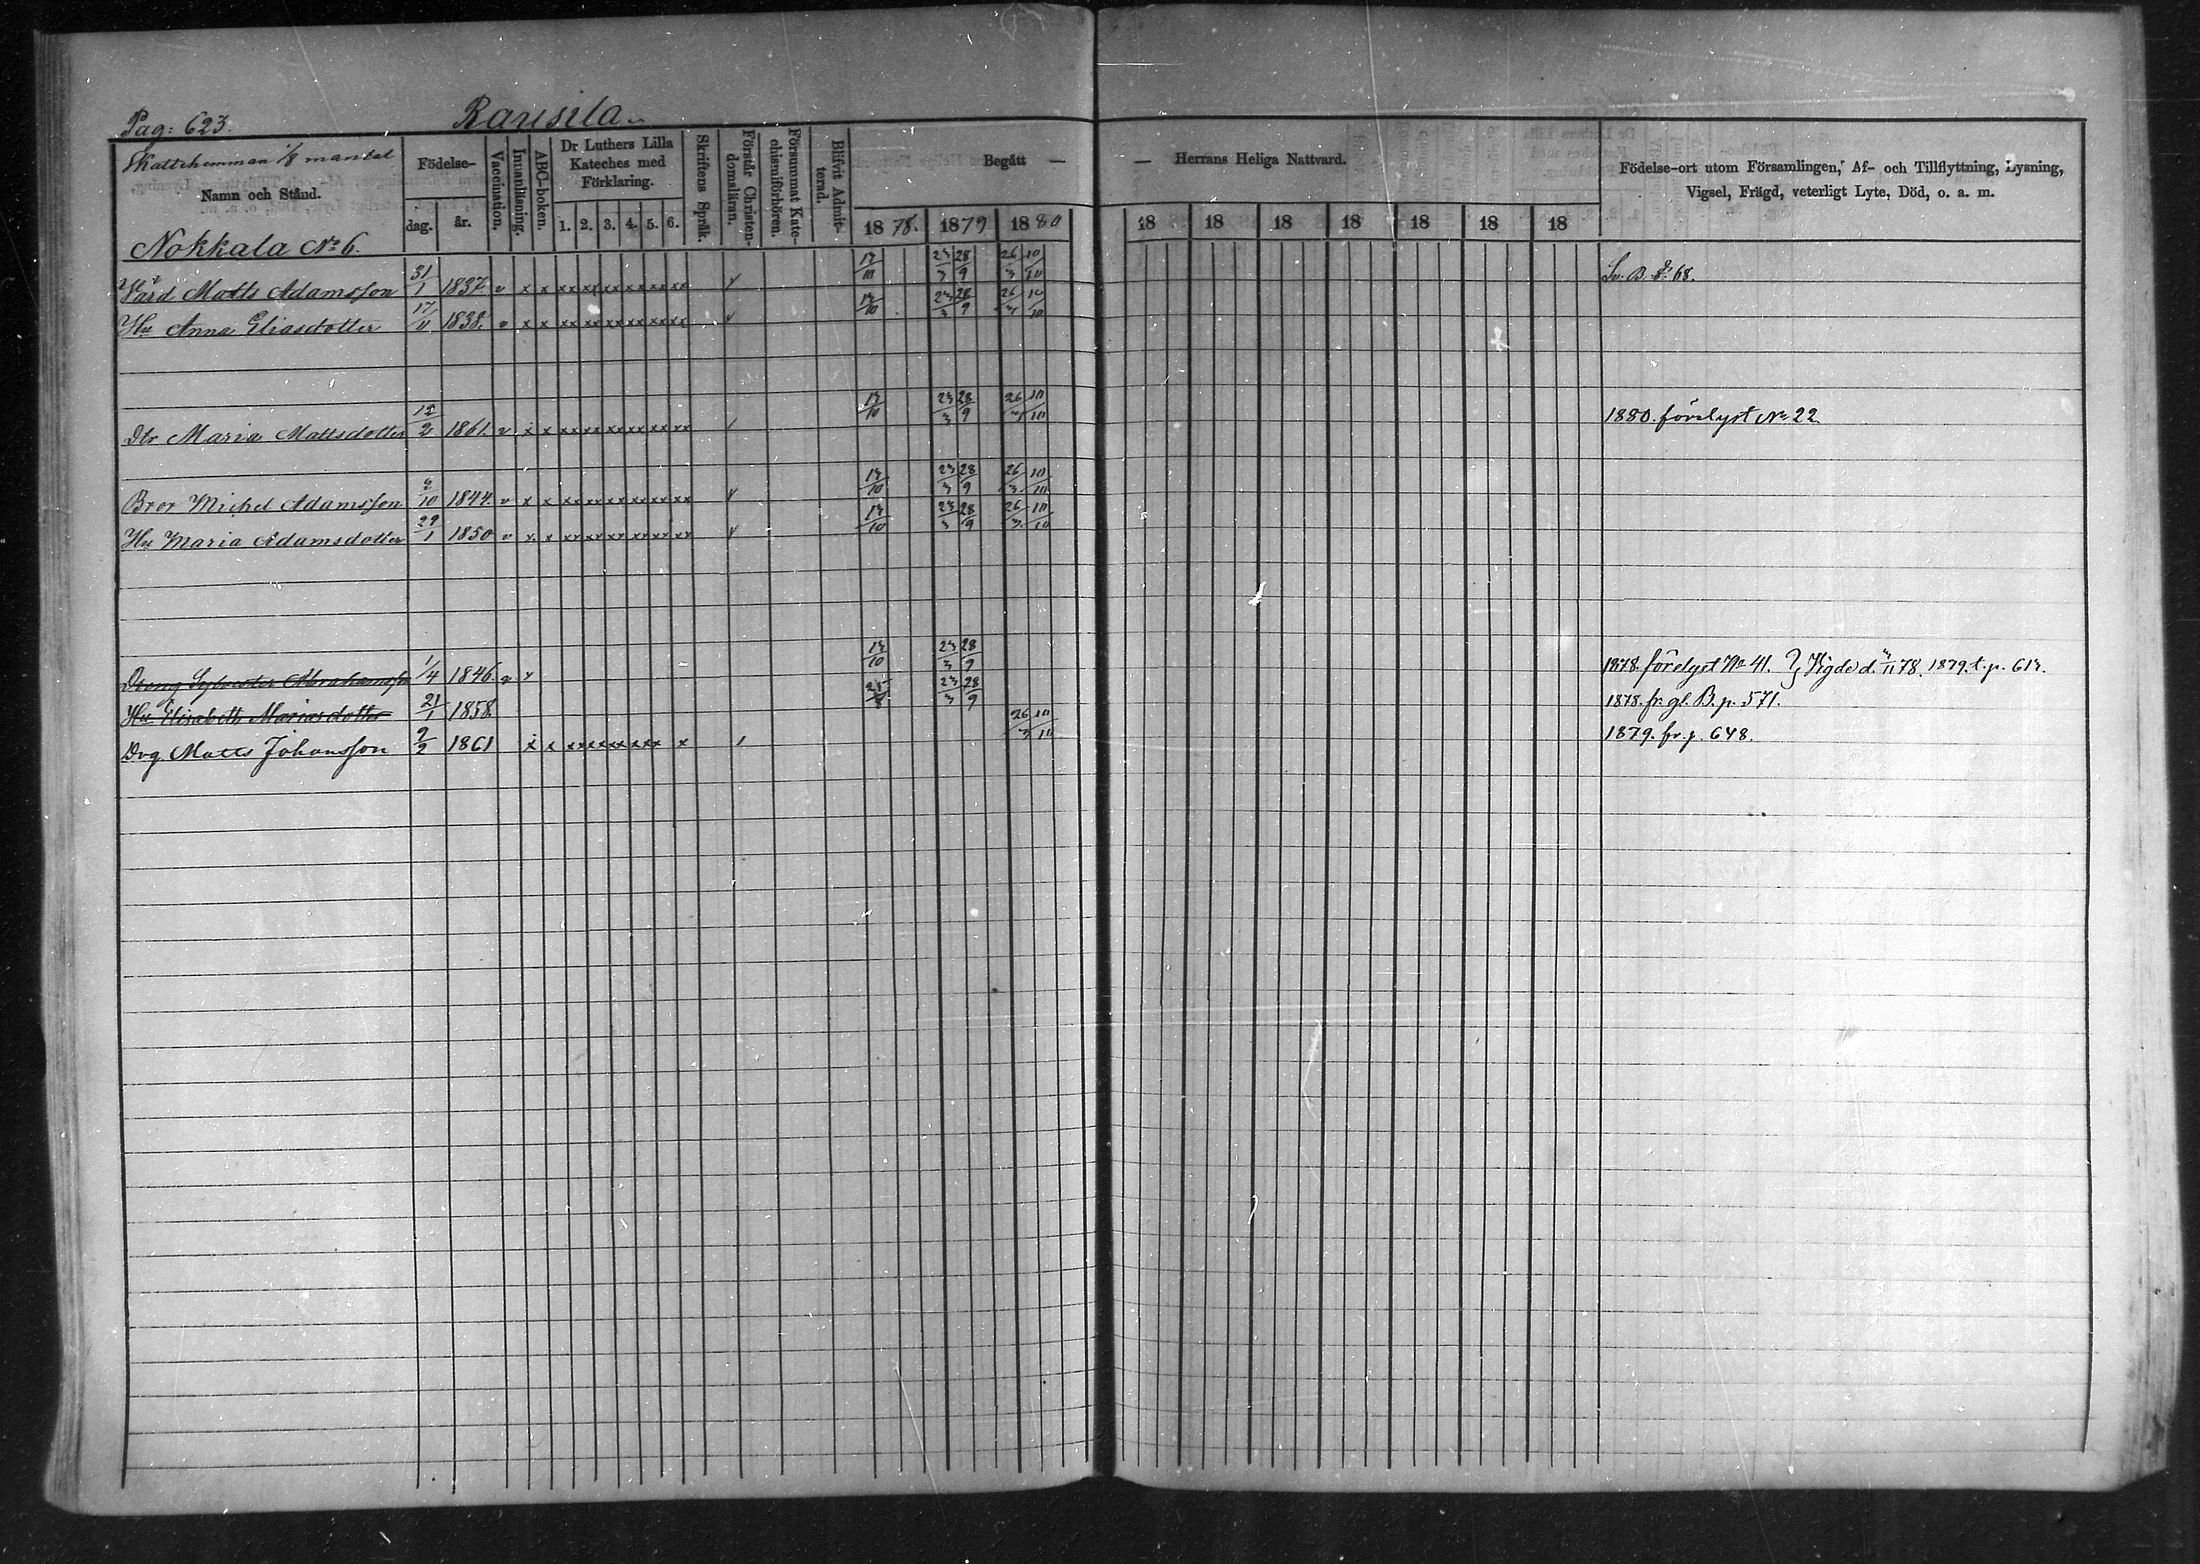 Pag: 623. Rausila
Skattehemman 1/8 mantal
Namn och Stånd.
Födelse-
dag. år.
Vaccination.
Innanläsning.
ABC-boken.
Dr Luthers Lilla
Kateches med
Förklaring.
1. 2. 3. 4. 5. 6.
Skriftens Språk.
Förstår Christen-
domsläran.
Försummat Kate-
chismiförhören.
Blifvit Admit-
terad.
Begått — — Herrans Heliga Nattvard.
1878. 1879 1880 18 18 18 18 18 18 18
Födelse-ort utom Församlingen, Af- och Tillflyttning, Lysning,
Vigsel, Frägd, veterligt Lyte, Död, o. a. m.
Nokkala No 6.
Värd Matts Adamsson 31/1 1837. v x x xx xx xx xx xx xx 23/3 28/9 26/3 10/10
Hu Anna Eliasdotter 17/11 1838. v x x xx xx xx xx xx xx 23/3 28/9 26/3 10/10
Dtr Maria Mattsdotter 1861. v x x xx xx xx xx xx xx 23/3 28/9 26/3 10/10 1880. förelyst No 22.
Bror Michel Adamsson 1844. v x x xx xx xx xx xx xx 23/3 28/9 26/3 10/10
Hu Maria Adamsdotter 29/1 1850 v x x xx xx xx xx xx xx 23/3 28/9 26/3 10/10
Dreng Sylvester Abrahamsson 1/4 1846. v x 23/3 28/9 1878. förelyst No 41. 1879. t. p.
Hu Elisabeth Mariasdotter 21/1 1858. 23/3 28/9 1878. fr. gl. B. p. 571.
Drg. Matts Johansson 2/2 1861 x x xx xx xx xx xx x 26/3 10/10 1879. fr. p. 648.